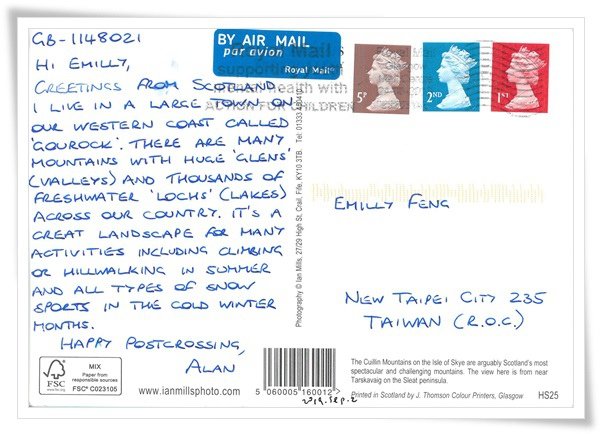 GB-1148021
HI EMILLY,
GREETINGS FROM SCOTLAND.
I LIVE IN A LARGE TOWN ON
OUR WESTERN COAST CALLED
'GOUROCK'. THERE ARE MANY
MOUNTAINS WITH HUGE 'GLENS'
(VALLEYS) AND THOUSANDS OF
FRESHWATER 'LOCHS' (LAKES)
ACROSS OUR COUNTRY. IT'S A
GREAT LANDSCAPE FOR MANY
ACTIVITIES INCLUDING CLIMBING
OR HILLWALKING IN SUMMER
AND ALL TYPES OF SNOW
SPORTS IN THE COLD WINTER
MONTHS.
HAPPY POSTCROSSING,
ALAN
BY AIR MAIL
par avion
Royal Mail®
Mail
health with
ACTION FOR CHILDREN
5P
2ND
1ST
EMILLY FENG
NEW TAIPEI CITY 235
TAIWAN (R.O.C.)
Photography © Ian Mills, 27/29 High St. Crail, Fife, KY10 3TB. Tel: 01333
FSC
MIX
Paper from
responsible sources
FSC® C023105
www.ianmillsphoto.com
5 060005 160012
2019.SEP.2
The Cuillin Mountains on the Isle of Skye are arguably Scotland's most
spectacular and challenging mountains. The view here is from near
Tarskavaig on the Sleat peninsula.
Printed in Scotland by J. Thomson Colour Printers, Glasgow
HS25